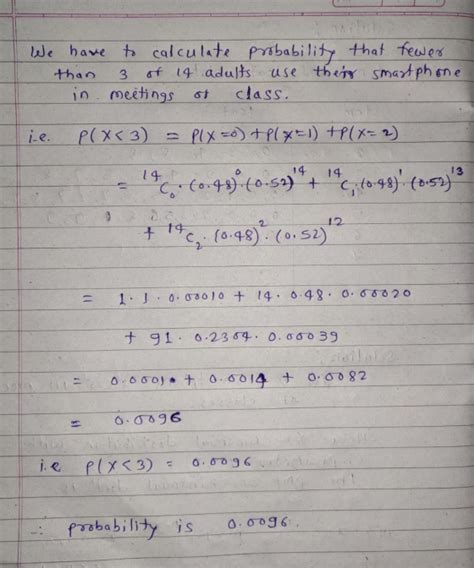 We have to calculate probability that fewer
than 3 of 14 adults use their smartphone
in meetings or class.
i.e. P(X<3) = P(X=0) + P(X=1) + P(X=2)
= ¹⁴C₀ · (0.48)⁰ · (0.52)¹⁴ + ¹⁴C₁ · (0.48)¹ · (0.52)¹³
+ ¹⁴C₂ · (0.48)² · (0.52)¹²
= 1 · 1 · 0.00010 + 14 · 0.48 · 0.00020
+ 91 · 0.2304 · 0.00039
= 0.00010 + 0.0014 + 0.0082
= 0.0096
i.e P(X<3) = 0.0096
∴ probability is 0.0096.